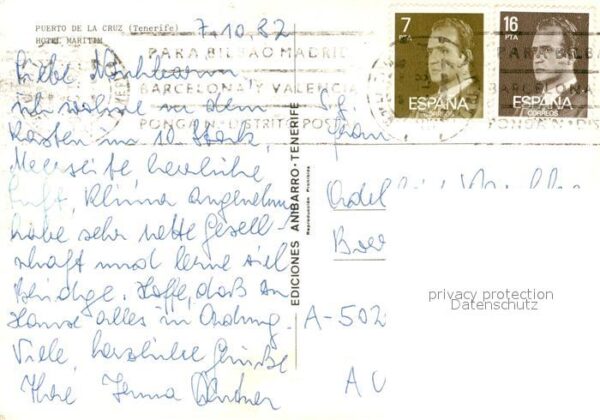 PUERTO DE LA CRUZ (Tenerife)
HOTEL MARITIM
7.10.82
7
PTA
ESPAÑA
CORREOS
16
PTA
ESPAÑA
CORREOS
PARA BILBAO MADRID
BARCELONA Y VALENCIA
PONGA N. DISTRITO POSTAL
PARA BILB
PONGA N. DIS
Liebe
ich wohne in dem
Kasten im 10. Stock,
Meerseite herrliche
Luft, Klima angenehm
habe sehr nette Gesell-
schaft und lerne viel
Hoffe, daß zu
Hause alles in Ordnung.
Viele herzliche Grüße
Ihre
EDICIONES ANIBARRO-TENERIFE
Reproducción Prohibida
Frau
A-502
privacy protection
Datenschutz